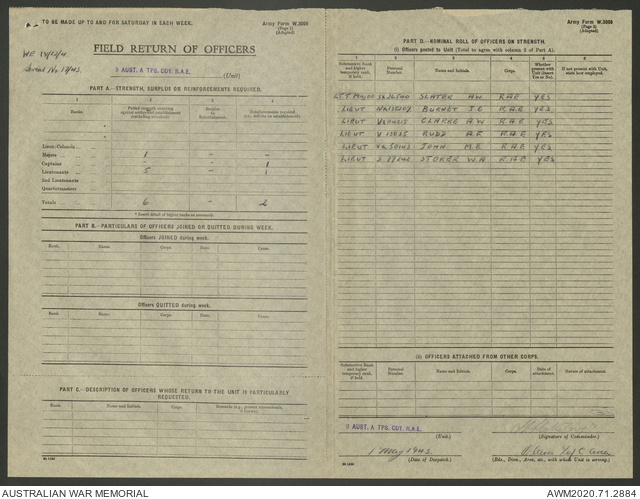 TO BE MADE UP TO AND FOR SATURDAY IN EACH WEEK.
Army Form W.3008
(Page 1)
(Adapted)
FIELD RETURN OF OFFICERS
Serial No 17/43.
9 AUST. A TPS. COY. R.A.E.
(Unit)
PART A.—STRENGTH, SURPLUS OR REINFORCEMENTS REQUIRED.
1 2 3 4
Ranks.
Lieut-Colonels
Majors 1 - -
Captains - - 1
Lieutenants 5 - 1
2nd Lieutenants
Quartermasters
Totals 6 - 2
* Insert detail of higher ranks as necessary.
PART B.—PARTICULARS OF OFFICERS JOINED OR QUITTED DURING WEEK.
Officers JOINED during week.
Rank. Name. Corps. Date. Cause.
Officers QUITTED during week.
Rank. Name. Corps. Date. Cause.
PART C.—DESCRIPTION OF OFFICERS WHOSE RETURN TO THE UNIT IS PARTICULARLY REQUESTED.
Rank. Name and Initials. Corps. Remarks (e.g., present whereabouts, if known).
Army Form W.3008
(Page 2)
(Adapted)
PART D.—NOMINAL ROLL OF OFFICERS ON STRENGTH.
(i) Officers posted to Unit (Total to agree with column 2 of Part A).
1 2 3 4 5 6
Substantive Rank and higher temporary rank, if held.
Personal Number.
Name and Initials.
Corps.
Whether present with Unit (insert Yes or No).
If not present with Unit, state how employed.
SLATER A W. RAE YES
LIEUT BURNET J. E. RAE YES
LIEUT CLARKE A.W. RAE YES
LIEUT RUDD A.E. RAE YES
LIEUT JOHN M.E. RAE YES
LIEUT STOKER W.A. RAE YES
(ii) OFFICERS ATTACHED FROM OTHER CORPS.
Substantive Rank and higher temporary rank, if held.
Personal Number.
Name and Initials.
Corps.
Date of attachment.
Nature of attachment.
9 AUST. A TPS. COY. R.A.E.
(Unit.)
(Signature of Commander.)
1 May 1943.
(Date of Despatch.)
(Bde., Divn., Area, etc., with which Unit is serving.)
AUSTRALIAN WAR MEMORIAL
AWM2020.71.2884